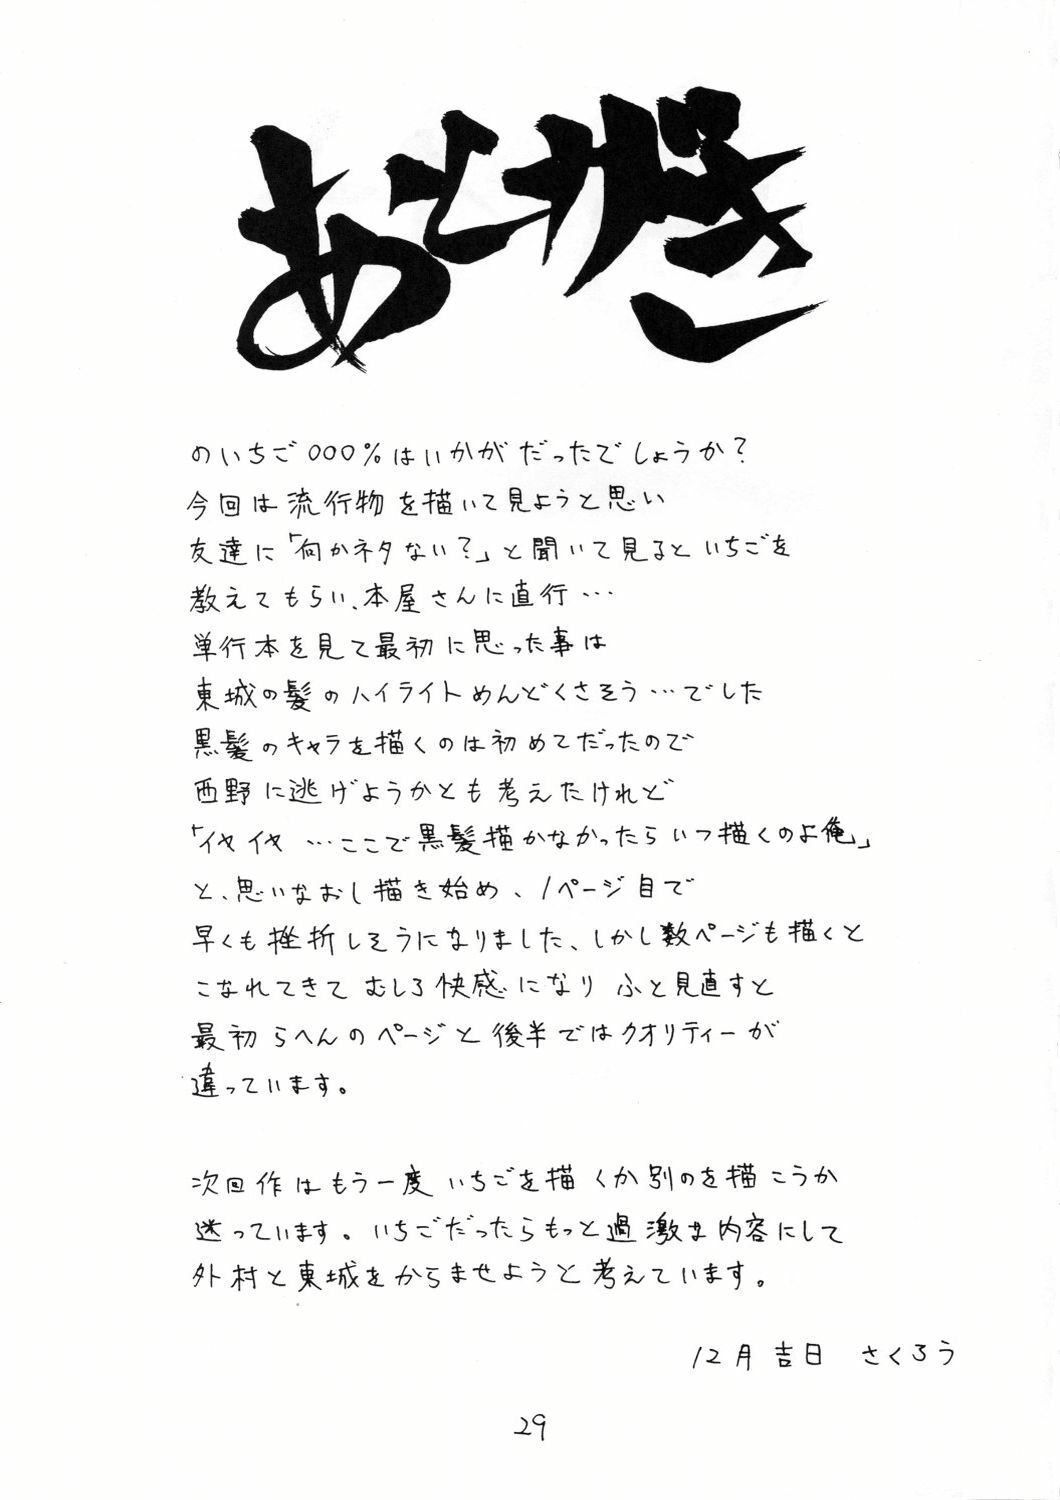 あとがき
のいちご000%はいかがだったでしょうか?
今回は流行物を描いて見ようと思い
友達に「何かネタない?」と聞いて見るといちごを
教えてもらい、本屋さんに直行…
単行本を見て最初に思った事は
東城の髪のハイライトめんどくさそう…でした
黒髪のキャラを描くのは初めてだったので
西野に逃げようかとも考えたけれど
「イヤイヤ…ここで黒髪描かなかったらいつ描くのよ俺」
と、思いなおし描き始め、1ページ目で
早くも挫折しそうになりました、しかし数ページも描くと
こなれてきてむしろ快感になりふと見直すと
最初らへんのページと後半ではクオリティーが
違っています。
次回作はもう一度いちごを描くか別のを描こうか
迷っています。いちごだったらもっと過激な内容にして
外村と東城をからませようと考えています。
12月吉日 さくろう
29